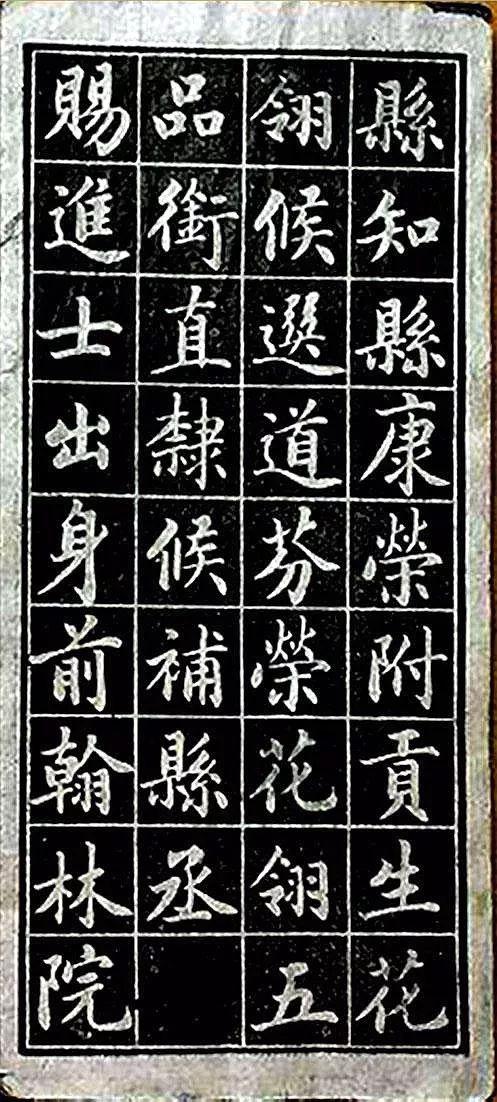 縣知縣康榮附貢生花
翎候選道芬榮花翎五
品銜直隸候補縣丞
賜進士出身前翰林院